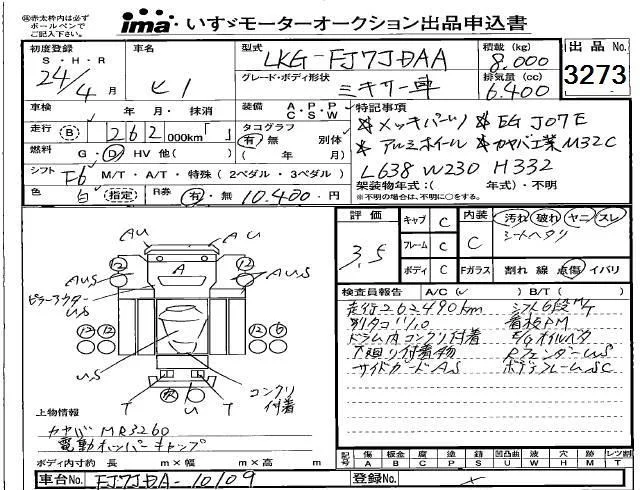 ㊟赤太枠内は必ず
ボールペンで
ご記入下さい。
ima いすゞモーターオークション出品申込書
初度登録
S・H・R
24/4 月
車名
ヒノ
型式
LKG-FJ7JDAA
グレード・ボディ形状
ミキサー車
積載 (kg)
8,000
排気量 (cc)
6,400
出品 No.
3273
車検 年・月・抹消
装備 A・P・P C・S・W
走行 B 262 000km「 」
タコグラフ
有 無 別体
( 年 月)
燃料 G・D・HV 他( )
シフト F6 M/T・A/T・特殊(2ペダル・3ペダル)
色 白 指定 R券 有・無 10,400 円
特記事項
＊メッキパーツ ＊EG J07E
＊アルミホイール ＊カヤバ工業 MR32C
L638 W230 H332
架装物年式:( 年式)・不明
※不明の場合は、不明に○をする。
評価
3.5
キャブ C
フレーム C
ボディ C
内装 C
汚れ 破れ ヤニ スレ
シートヘタリ
Fガラス 割れ 線 点傷 イバリ
検査員報告 A/C(✓) B/T( )
走行262490km シフト6段M/T
別タコ11/10 看板アM
ドラム内コンクリ付着 E/Gオイルベタ
下廻り付着物 RフェンダーUS
サイドガードAS ボディフレームSC
AU AU
A
AUS AUS
12 12
ピラーアウター
US
12 12 12 6
US
コンクリ
付着
T U T
上物情報
カヤバ MR3260
電動ホッパーキャップ
ボディ内寸約 長 m×幅 m×高 m
記号 傷 A 板金 B 腐 C 塗 P 錆 S 凹凸曲 U 波 W 穴 H 欠 M 折 T レツ割 T
車台No. FJ7JDA-10109
登録No.